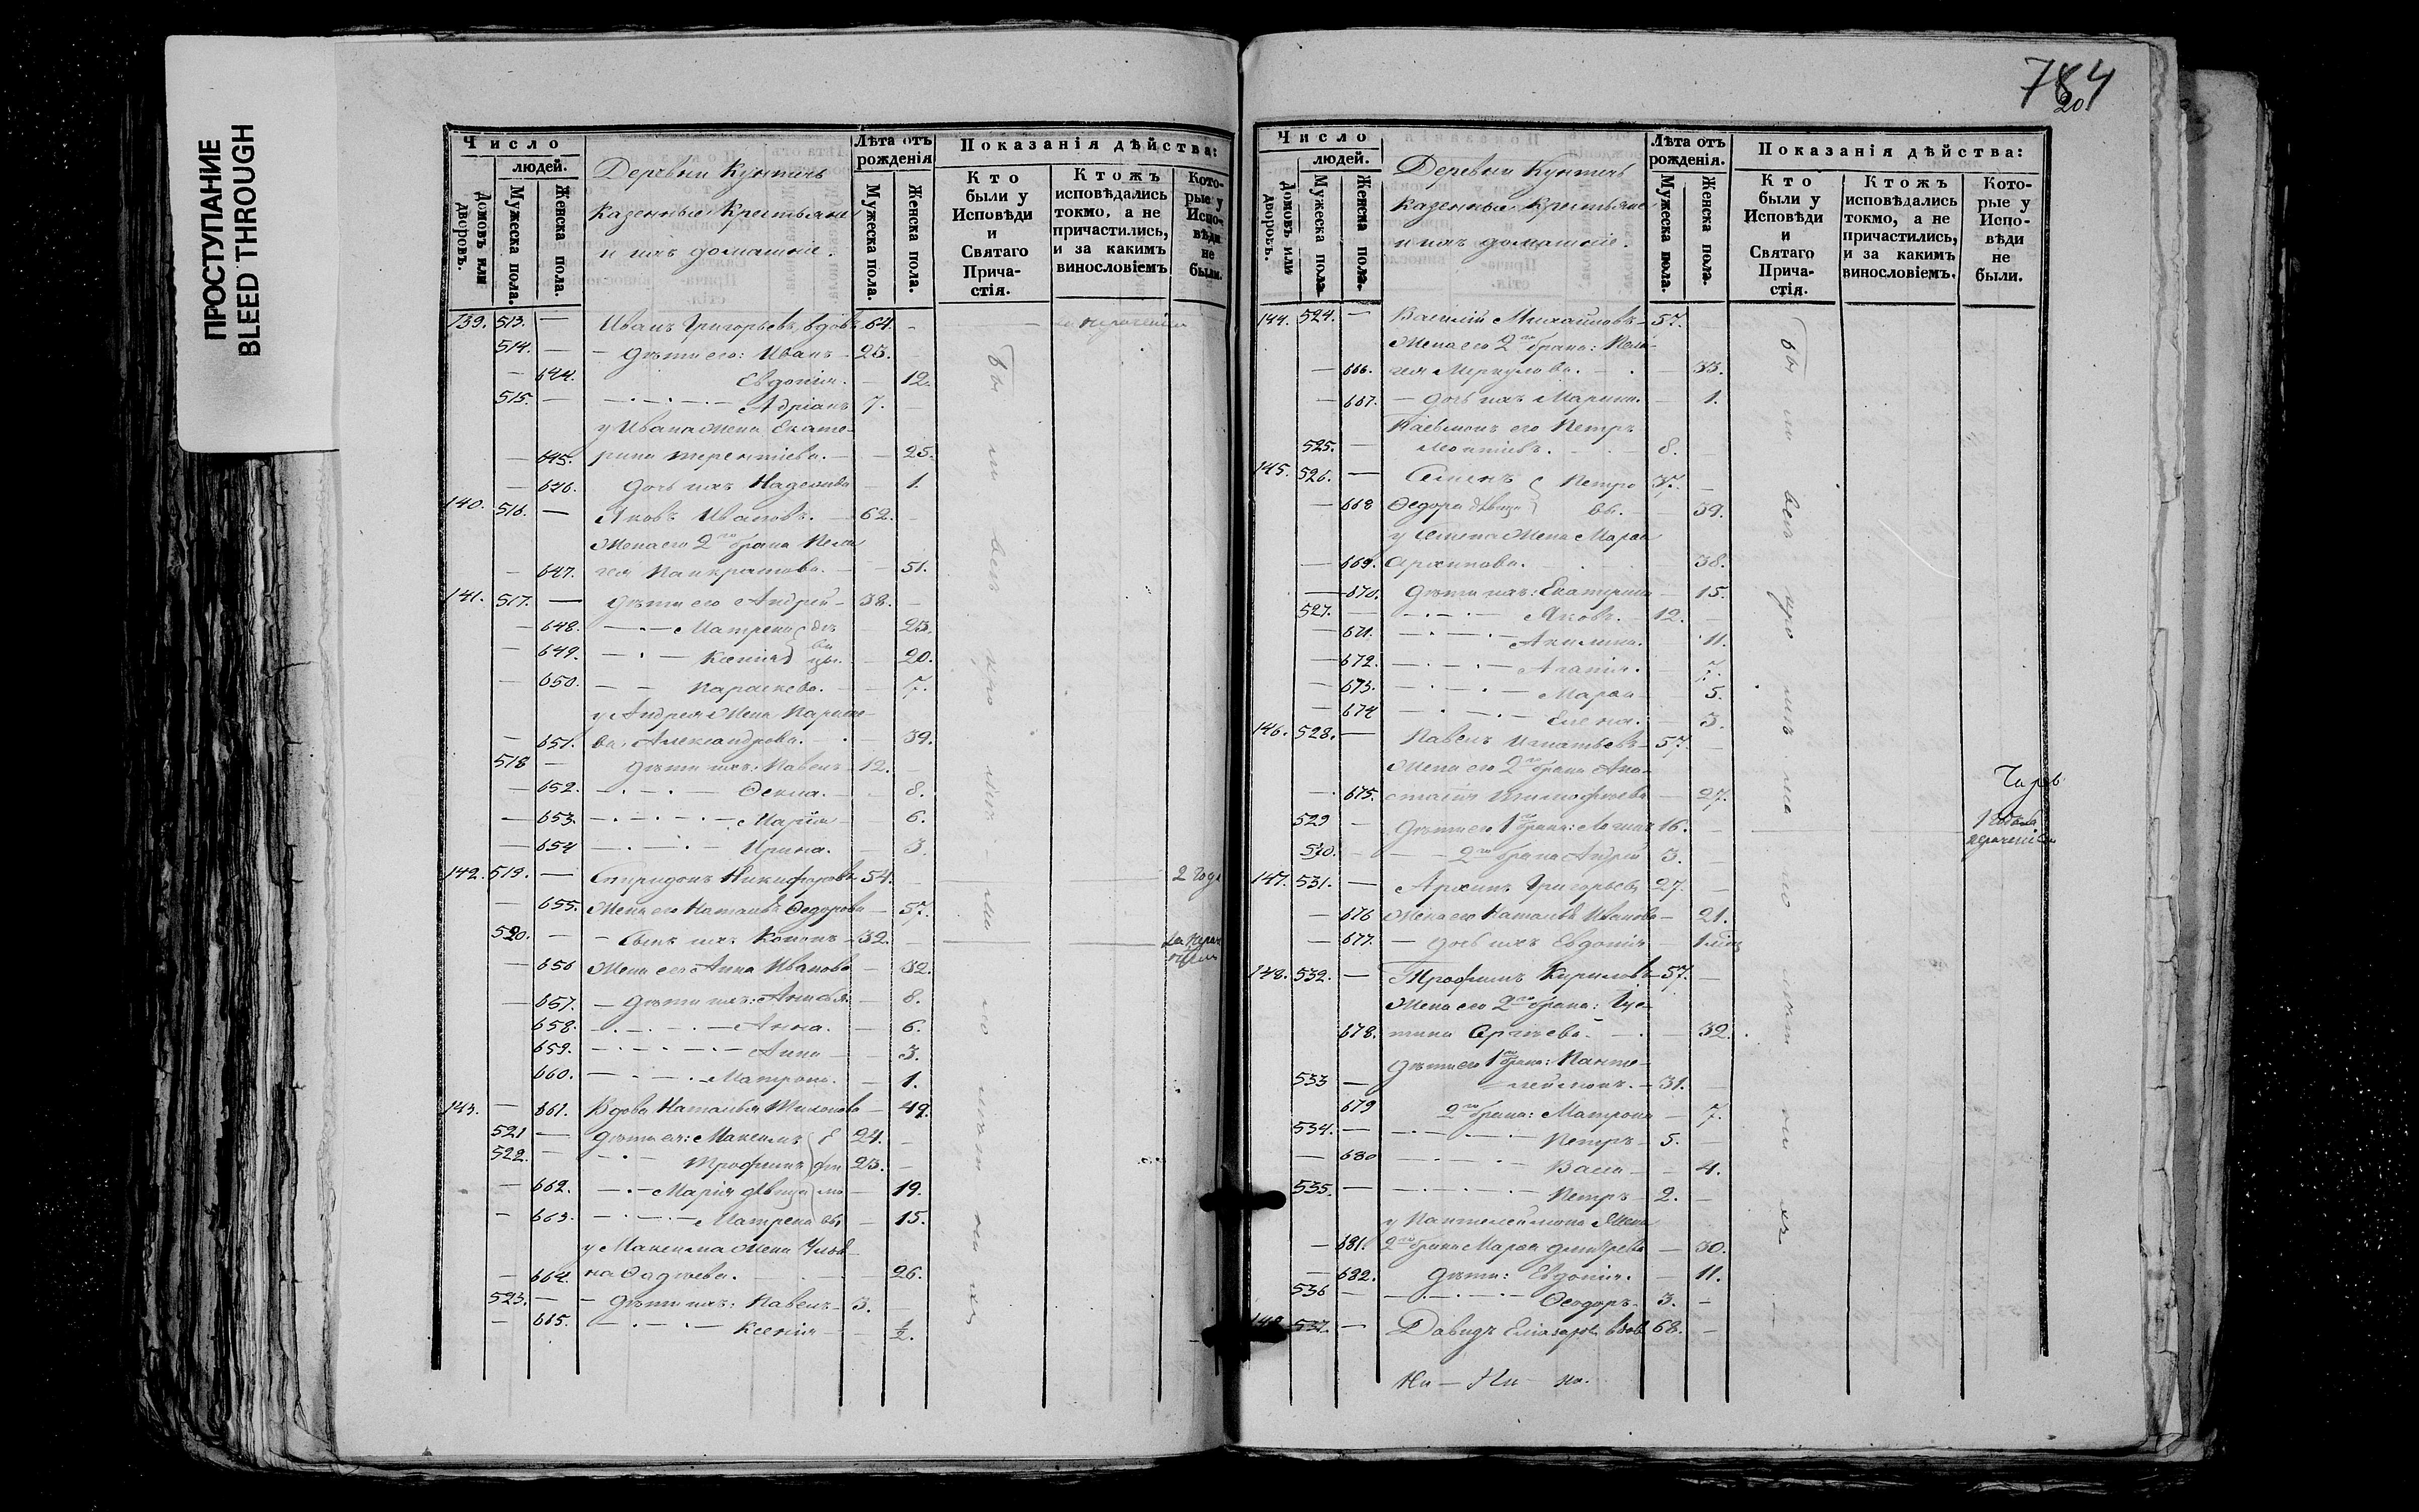 ПРОСТУПАНИЕ
BLEED THROUGH
Число
людей.
Домовъ или дворовъ.
Мужеска пола.
Женска пола.
Деревни
Казенные Крестьяне
и ихъ домашніе.
Лѣта отъ рожденія
Мужеска пола.
Женска пола.
Показанія дѣйства:
Кто были у Исповѣди и Святаго Причастія.
Ктожъ исповѣдались токмо, а не причастились, и за какимъ винословіемъ
Которые у Исповѣди не были.
139. 513. — Иванъ Григорьевъ, вдовъ 64. -
514. — дѣти его: Иванъ 23.
— 644. Евдокія. — 12.
515. — Адріанъ 7.
у Ивана жена Екате-
— 645. рина Терентіева. — 25.
— 646. дочь ихъ Надежда — 1.
140. 516. — Яковъ Ивановъ. 62.
Жена его 2го брака Пела
— 647. гея Панкратова. — 51.
141. 517. — дѣти его Андрей 38.
— 648. Матрена дѣ 23.
— 649. Ксенія вицы. 20.
— 650. Параскева. 7.
у Андрея жена Параске-
— 651. ва Александрова. 39.
518 — дѣти ихъ: Павелъ 12.
— 652. Ѳекла. 8.
— 653. Марія 6.
— 654 Ирина. 3.
142. 519. — Спиридонъ Никифоровъ 54. 2 года
— 655. Жена его Наталья Ѳедорова 57.
520. — Сынъ ихъ Кононъ 32.
— 656 Жена его Анна Иванова 32.
— 657. дѣти ихъ: 8.
658. Анна. 6.
659. Анна 3.
660. Матрона. 1.
143. — 661. Вдова Наталья Тихонова 49.
521 — дѣти ея: Максимъ 24.
522. — Трофимъ 23.
— 662. Марія дѣвица 19.
— 663. Матрена 15.
у Максима жена Улья
— 664. на Ѳадѣева. 26.
523. — дѣти ихъ: Павелъ 3.
— 665. Ксенія ½.
784
20
Число
людей.
Домовъ или дворовъ.
Мужеска пола.
Женска пола.
Деревни
Казенные Крестьяне
и ихъ домашніе.
Лѣта отъ рожденія.
Мужеска пола.
Женска пола.
Показанія дѣйства:
Кто были у Исповѣди и Святаго Причастія.
Ктожъ исповѣдались токмо, а не причастились, и за какимъ винословіемъ.
Которые у Исповѣди не были.
144. 524. — Василій Михайловъ 57.
Жена его 2го брака: Пела-
— 666. гея Меркулова. 33.
— 667. дочь ихъ Марина. 1.
его Петръ
525. — Леонтіевъ. 8.
145. 526. — Семенъ Петро 37.
— 668 Ѳедора дѣвица вы. 39.
у Семена жена Марѳа
— 669. Архипова. 38.
— 670. дѣти ихъ: Екатерина 15.
527. — Яковъ. 12.
— 671. Акилина. 11.
— 672. Агапія. 7.
— 673. Марѳа 5.
— 674 Елена. 3.
146. 528. — Павелъ Игнатьевъ 57.
Жена его 2го брака Ана-
— 675. стасія Тимофеева 27.
529 — дѣти его 1го брака: Логинъ 16.
530. — 2го брака Андрей 3.
147. 531. — Архипъ Григорьевъ 27.
— 676 Жена его Наталья Иванова 21.
— 677. дочь ихъ Евдокія 1
148. 532. — Трофимъ Кириловъ 57.
Жена его 2го брака: Іус-
678. тина Сергѣева. 32.
дѣти его 1го брака: Панте-
533 — леймонъ. 31.
679 2го брака: Матрона 7.
534. — Петръ 5.
— 680 4.
535. — Петръ 2.
у Пантелеймона жена
— 681. 2го брака Марѳа Дмитрева 30.
— 682. дѣти: Евдокія. 11.
536 — Ѳеодоръ 3.
149 537. — Давидъ Еліазаров вдов 68.